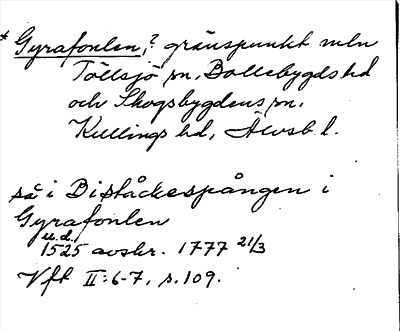 * Gyrafonlen,? gränspunkt mln
Töllsjö sn, Bollebygds hd
och Skogsbygdens sn,
Kullings hd, Älvsb. l.
så i Biståckespången i
Gyrafonlen
u.d.
1525 avskr. 1777 21/3
Vft II:6-7, s. 109.